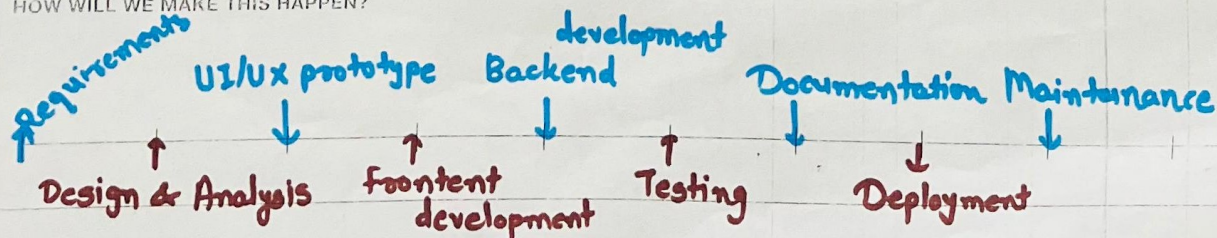 HOW WILL WE MAKE THIS HAPPEN?
Requirements
UI/UX prototype
Backend development
Documentation
Maintainance
Design & Analysis
Frontent
development
Testing
Deployment